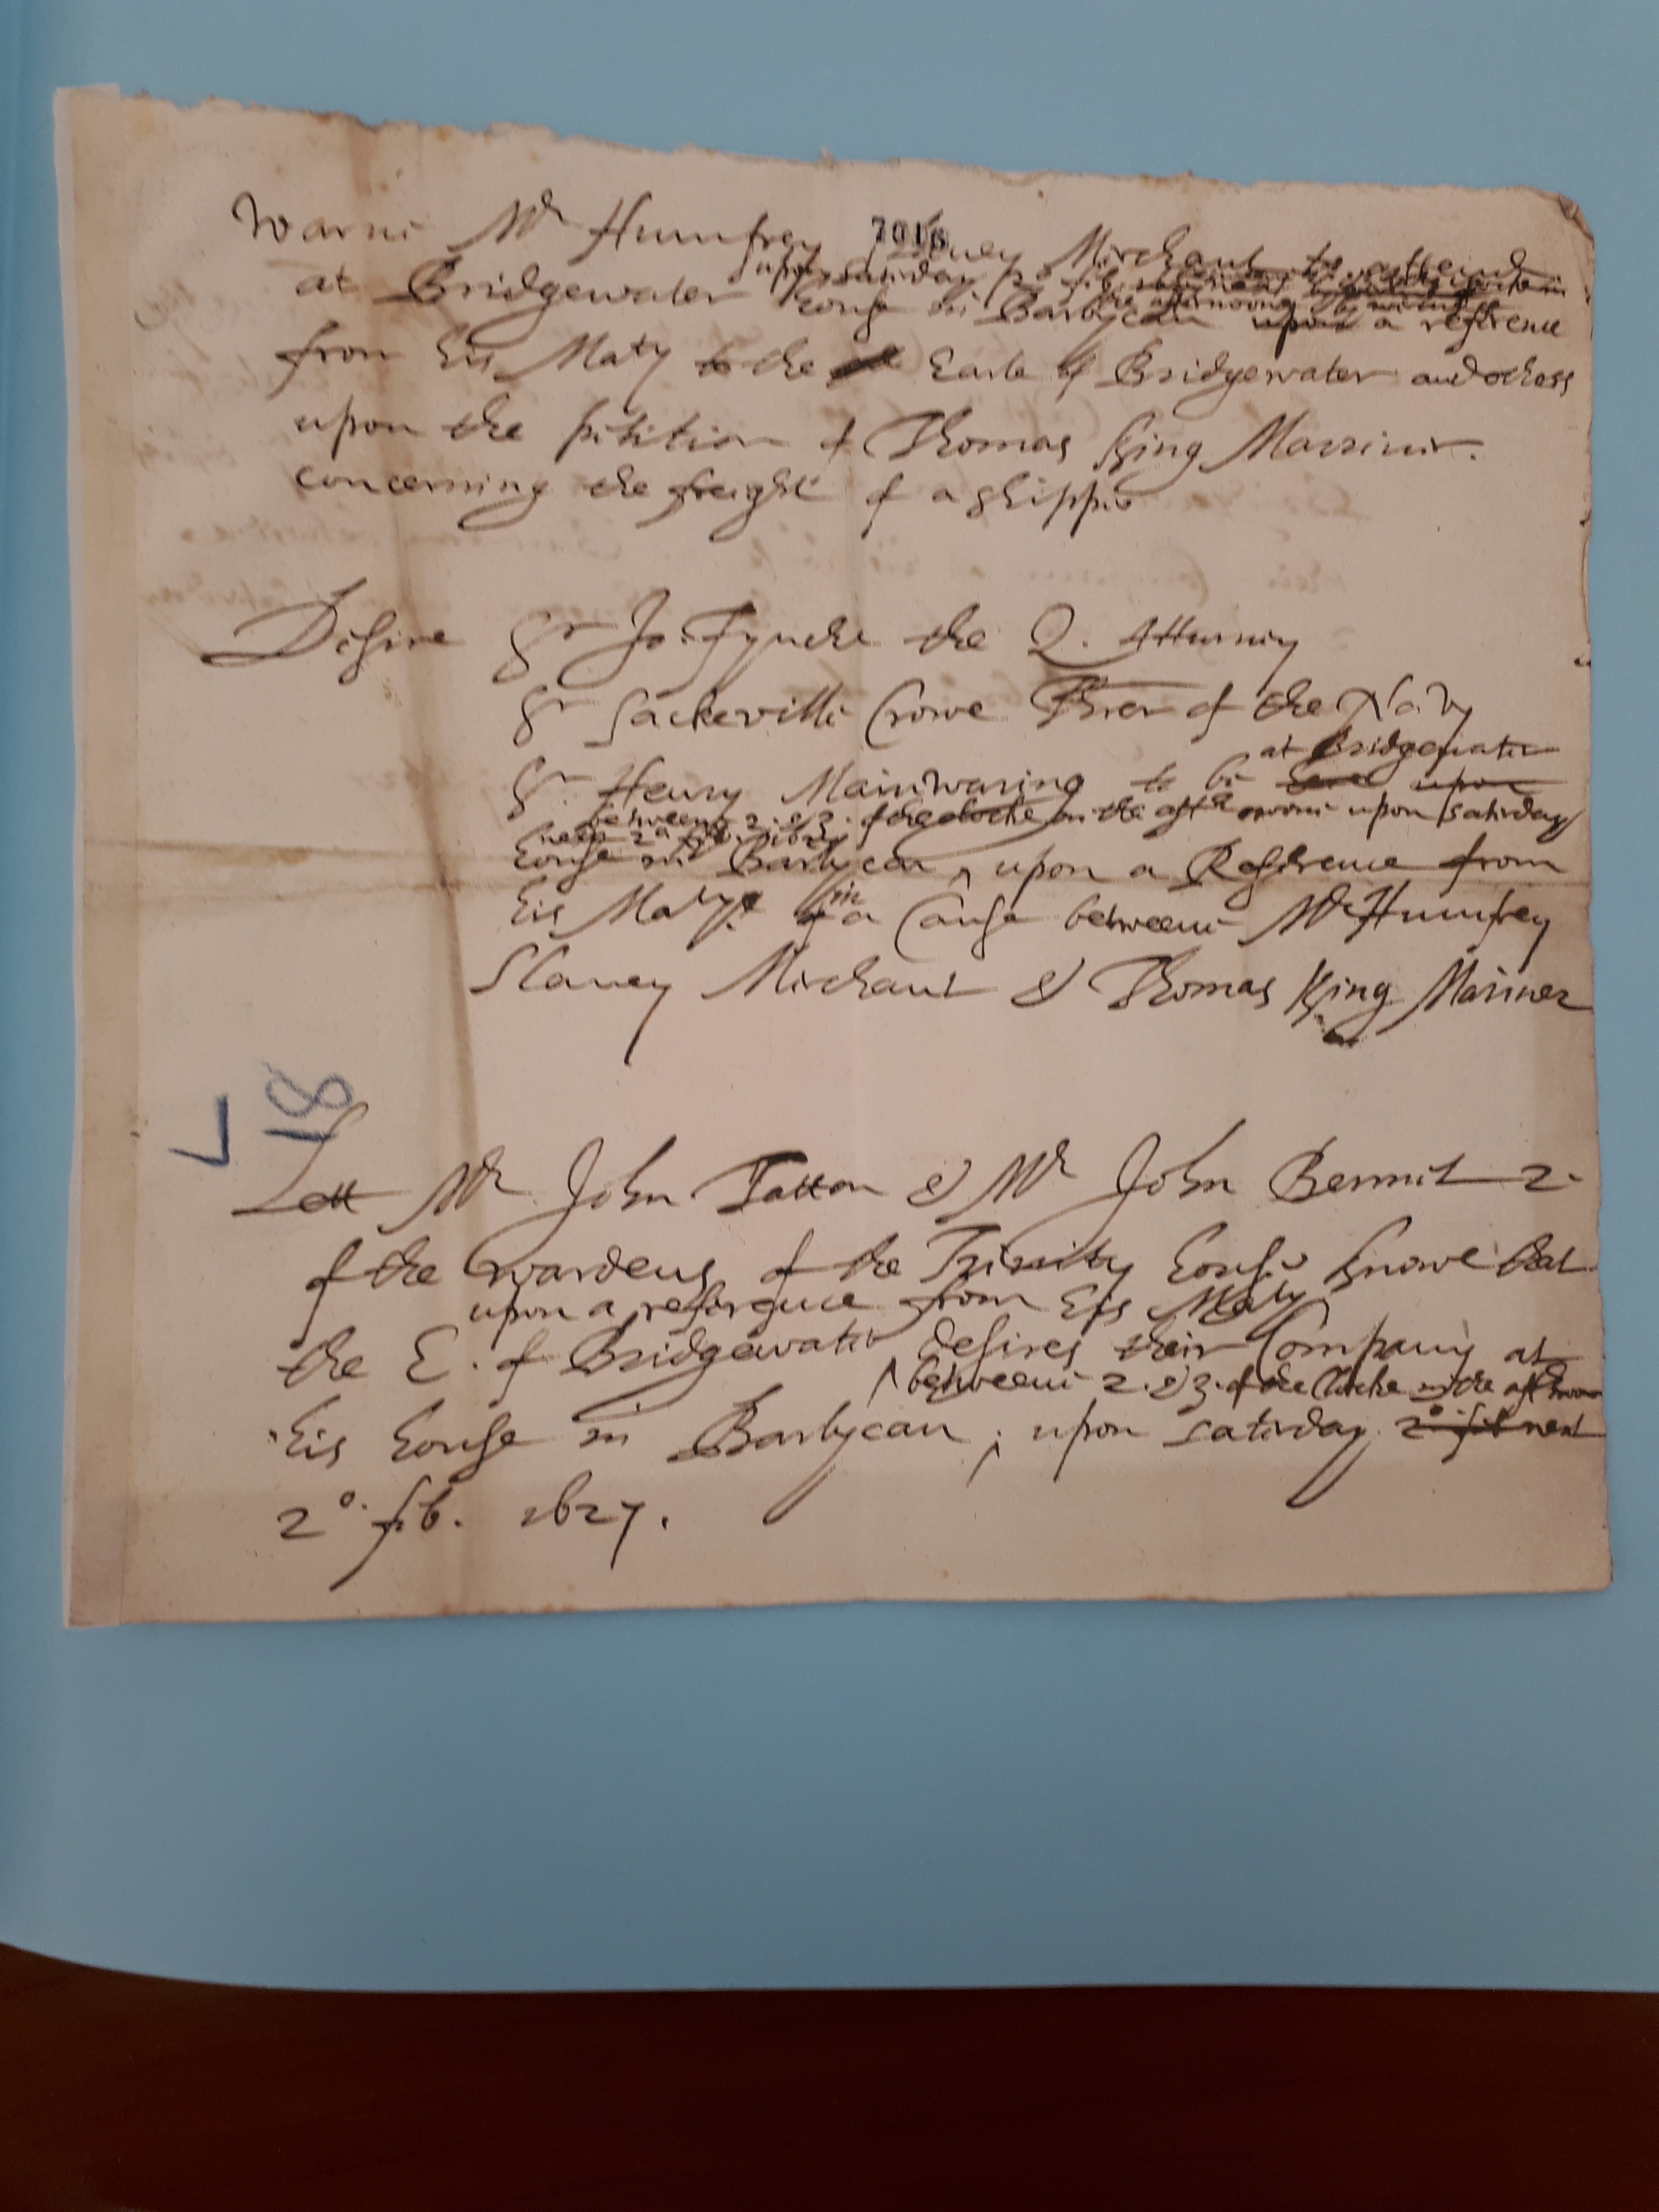 Warne Mr Humfrey Slaney Merchant to attend
7016
upon saturday 2º feb. next
at Bridgewater house in Barbycan upon a reference
the afternoone by vertue of
from his Maty to the Earle of Bridgewater and others
upon the petition of Thomas King Marriner.
concerning the freight of a shippe
Desire Sr Jo: Fynche the Q. Atturney
Sr Sackeville Crowe Threr of the Navy
at Bridgewater
Sr Henry Mainwaring to be here upon
betweene 2. & 3. of the clocke in the afternoone upon saturday
next 2º feb. 1627
house in Barbycan, upon a Reference from
his Maty. in a Cause betweene Mr Humfrey
Slaney Merchant & Thomas King Mariner
18
Lett Mr John Tatton & Mr John Bennet 2.
of the wardens of the Trinity house knowe that
upon a reference from his Maty
the E. of Bridgewater desires their Company at
betweene 2. & 3. of the Clocke in the afternoone
his house in Barbycan, upon saturday 2º feb next
2º. feb. 1627.